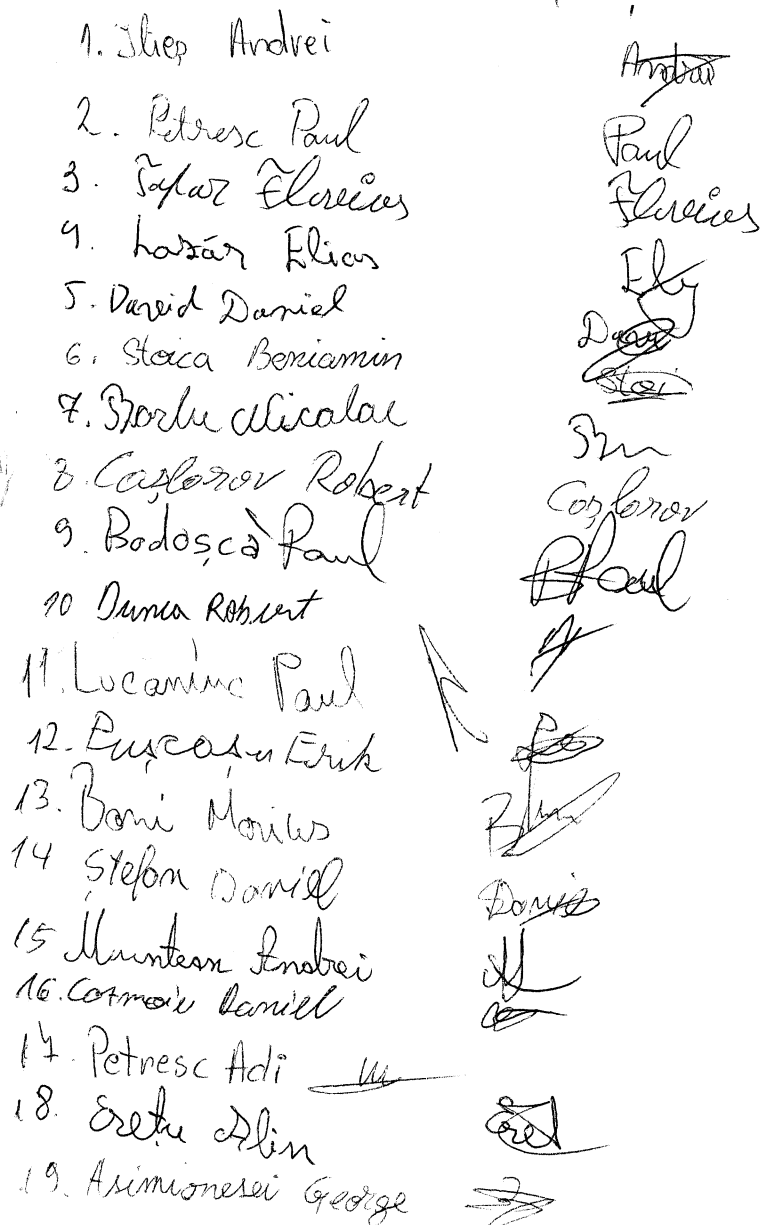 1. Ilieș Andrei Andrei
2. Petresc Paul Paul
3. Țăplar Florius Florius
4. Lazăr Elias Ely
5. David Daniel
6. Stoica Beniamin Stoi
7. Borlu Nicolae
8. Caslorov Robert Coslorov
9. Bodoșcă Paul P Paul
10 Duma Robert
11. Lucaninc Paul
12. Pușcașu Erik
13. Boni Marius
14 Ștefan Daniel Daniel
15 Muntean Andrei
16. Cozmoiu Daniel
17. Petresc Adi
18. Crețu Alin Creț
19. Asimionesei George